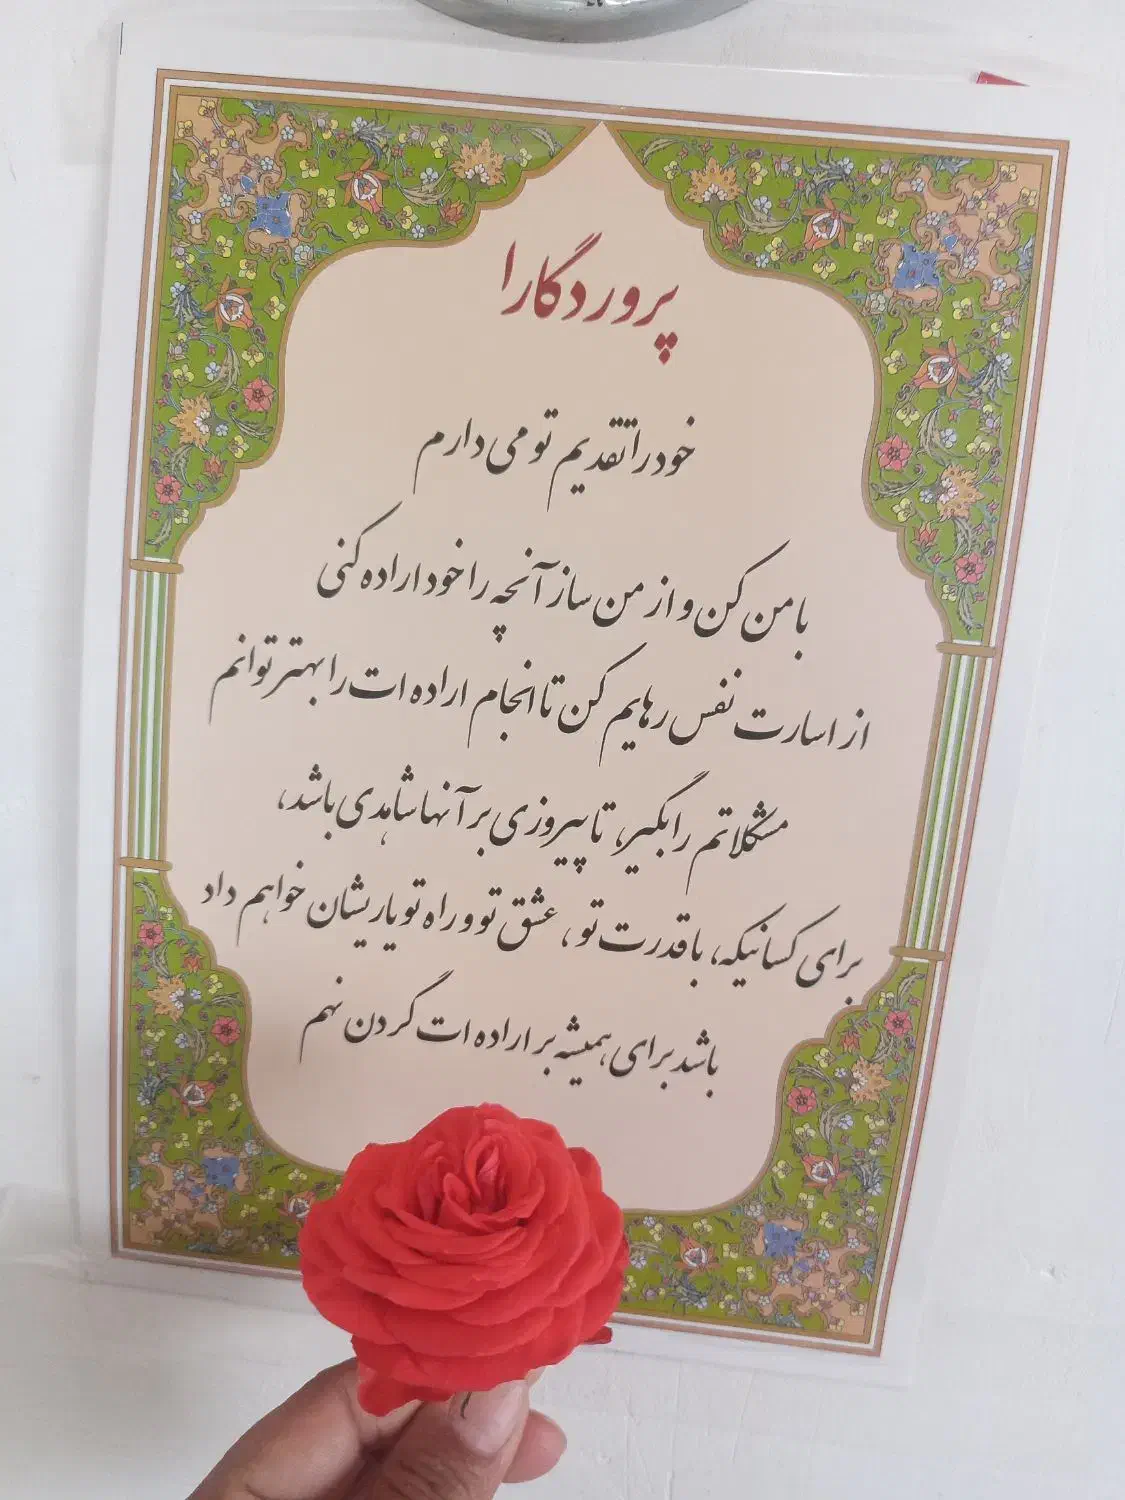 پروردگارا
خود را تقدیم تو می دارم
با من کن و از من ساز آنچه را خود اراده کنی
از اسارت نفس رهایم کن تا انجام اراده ات را بهتر توانم
مشکلاتم را بگیر، تا پیروزی بر آنها شاهدی باشد،
برای کسانیکه، با قدرت تو، عشق تو و راه تو یاریشان خواهم داد
باشد برای همیشه بر اراده ات گردن نهم